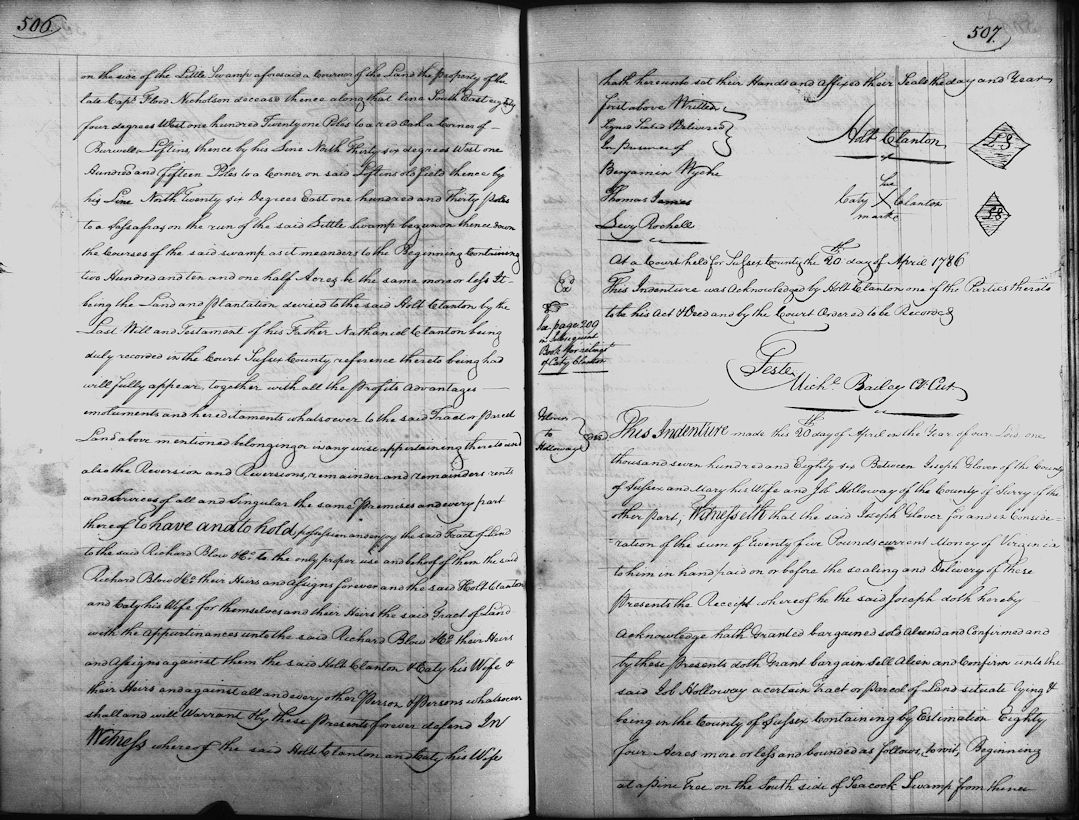 506.
on the side of the Little Swamp aforesaid a Cornor of the Land the Property of the
late Capt. Flood Nicholson deceas'd thence along that line South East eighty
four degrees West one hundred Twenty one Poles to a red Oak a Corner of
Burwell Loftins, thence by his Line North Thirty six degrees West one
Hundred and fifteen Poles to a Corner on said Loftins old field thence by
his Line North Twenty six Degrees East one hundred and Thirty Poles
to a Sassafras on the run of the said Little Swamp begun on thence down
the Courses of the said swamp as it meanders to the Beginning Containing
two Hundred and ten and one half Acres be the same more or less It
being the Land and plantation devised to the said Holt Clanton by the
Last Will and Testament of his Father Nathaniel Clanton being
duly recorded in the Court Sussex County reference thereto being had
will fully appear, together with all the profits Advantages
emoluments and hereditaments whatsoever to the said Tract or parcel
Land above mentioned belonging or in any wise appertaining thereto and
also the Reversion and Reversions, remainder and remainders rents
and Services of all and Singular the same Premises and every part
thereof to have and to hold, possess and enjoy the said Tract of Land
to the said Richard Blow & Co. to the only proper use and behoof of them the said
Richard Blow & Co. their Heirs and Assigns forever and the said Holt Clanton
and Caty his Wife for themselves and their Heirs the said Tract of Land
with the Appurtinances unto the said Richard Blow & Co. their Heirs
and Assigns against them the said Holt Clanton & Caty his Wife &
their Heirs and against all and every other Person & Persons whatsoever
shall and will Warrant & by these Presents forever defend In
Witness whereof the said Holt Clanton and Caty his Wife
507.
hath hereunto set their Hands and affixed their Seals the day and Year
first above Written
Signed Sealed Delivered
In Presence of
Benjamin Wyche
Thomas James
Levy Rochell
Holt Clanton
LS
her
Caty X Clanton
mark
LS
At a Court held for Sussex County the 20th day of April 1786
This Indenture was Acknowledged by Holt Clanton one of the Parties thereto
to be his Act & Deed and by the Court Ordered to be Recorded
Exd
See page 200
in Subsequent
Book for relinqt
of Caty Clanton
Teste,
Michl. Bailey Cl Cur
Deliver
to
Holloway
Exd
This Indenture made this 20th day of April in the Year of our Lord one
thousand seven hundred and Eighty six Between Joseph Glover of the County
of Sussex and Mary his Wife and Job Holloway of the County of Surry of the
other part, Witnesseth that the said Joseph Glover for and in Conside=
=ration of the sum of twenty five Pounds current Money of Virginia
to him in hand paid on or before the sealing and Delivery of these
presents the Receipt whereof he the said Joseph doth hereby
Acknowledge hath Granted bargained sold Aliend and Confirmed and
by these presents doth Grant bargain Sell Alien and Confirm unto the
said Job Holloway a certain Tract or parcel of Land situate lying &
being in the County of Sussex Containing by Estimation Eighty
four Acres more or less and bounded as follows, to wit, Beginning
at a pine Tree on the South side of Seacock Swamp from thence